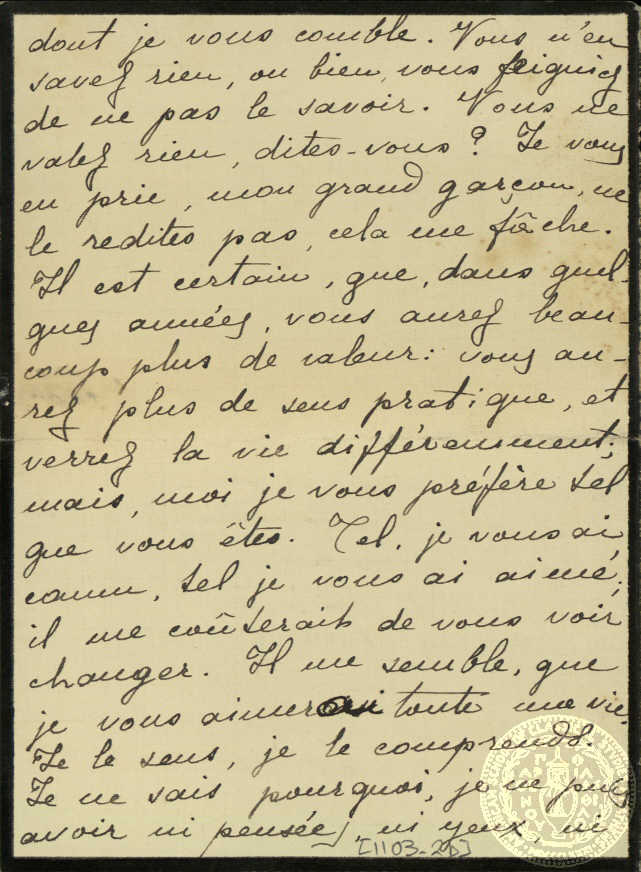 dont je vous comble. Vous n'en
savez rien, ou bien, vous feignez
de ne pas le savoir. Vous ne
valez rien, dites-vous? Je vous
en prie, mon grand garçon, ne
le redites pas, cela me fâche.
Il est certain, que, dans quel-
ques années, vous aurez beau-
coup plus de valeur: vous au-
rez plus de sens pratique, et
verrez la vie différemment;
mais, moi je vous préfère tel
que vous êtes. Tel, je vous ai
connu, tel je vous ai aimé;
il me coûterait de vous voir
changer. Il me semble, que
je vous aimerai toute ma vie.
Je le sens, je le comprends.
Je ne sais pourquoi, je ne puis
avoir ni pensée, ni yeux, ni
[1103-2b]